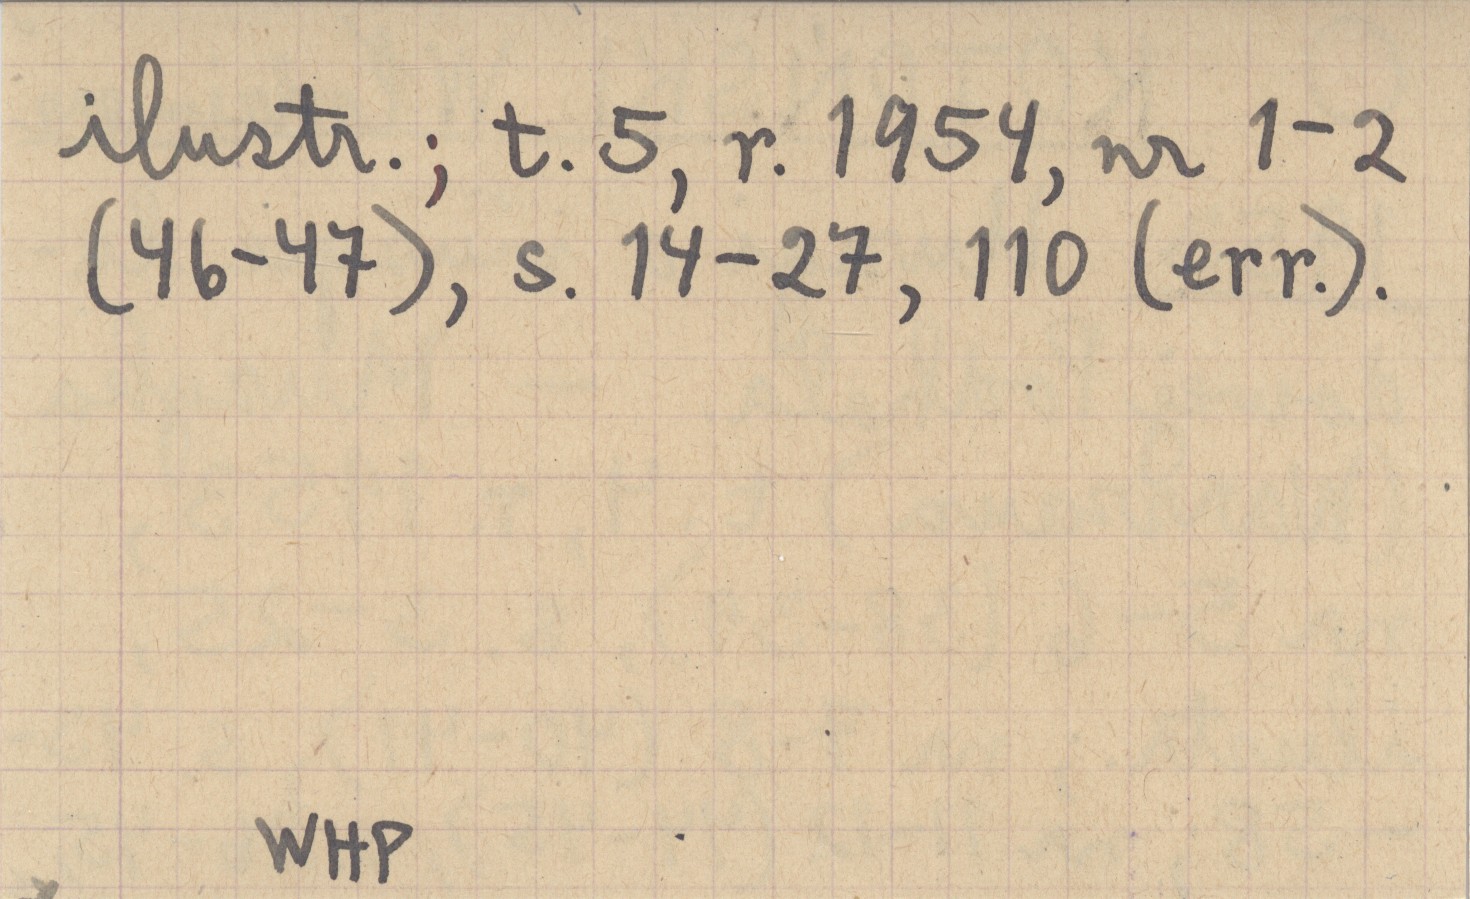 ilustr.; t. 5, r. 1954, nr 1-2
(46-47), s. 14-27, 110 (err.).
WHP